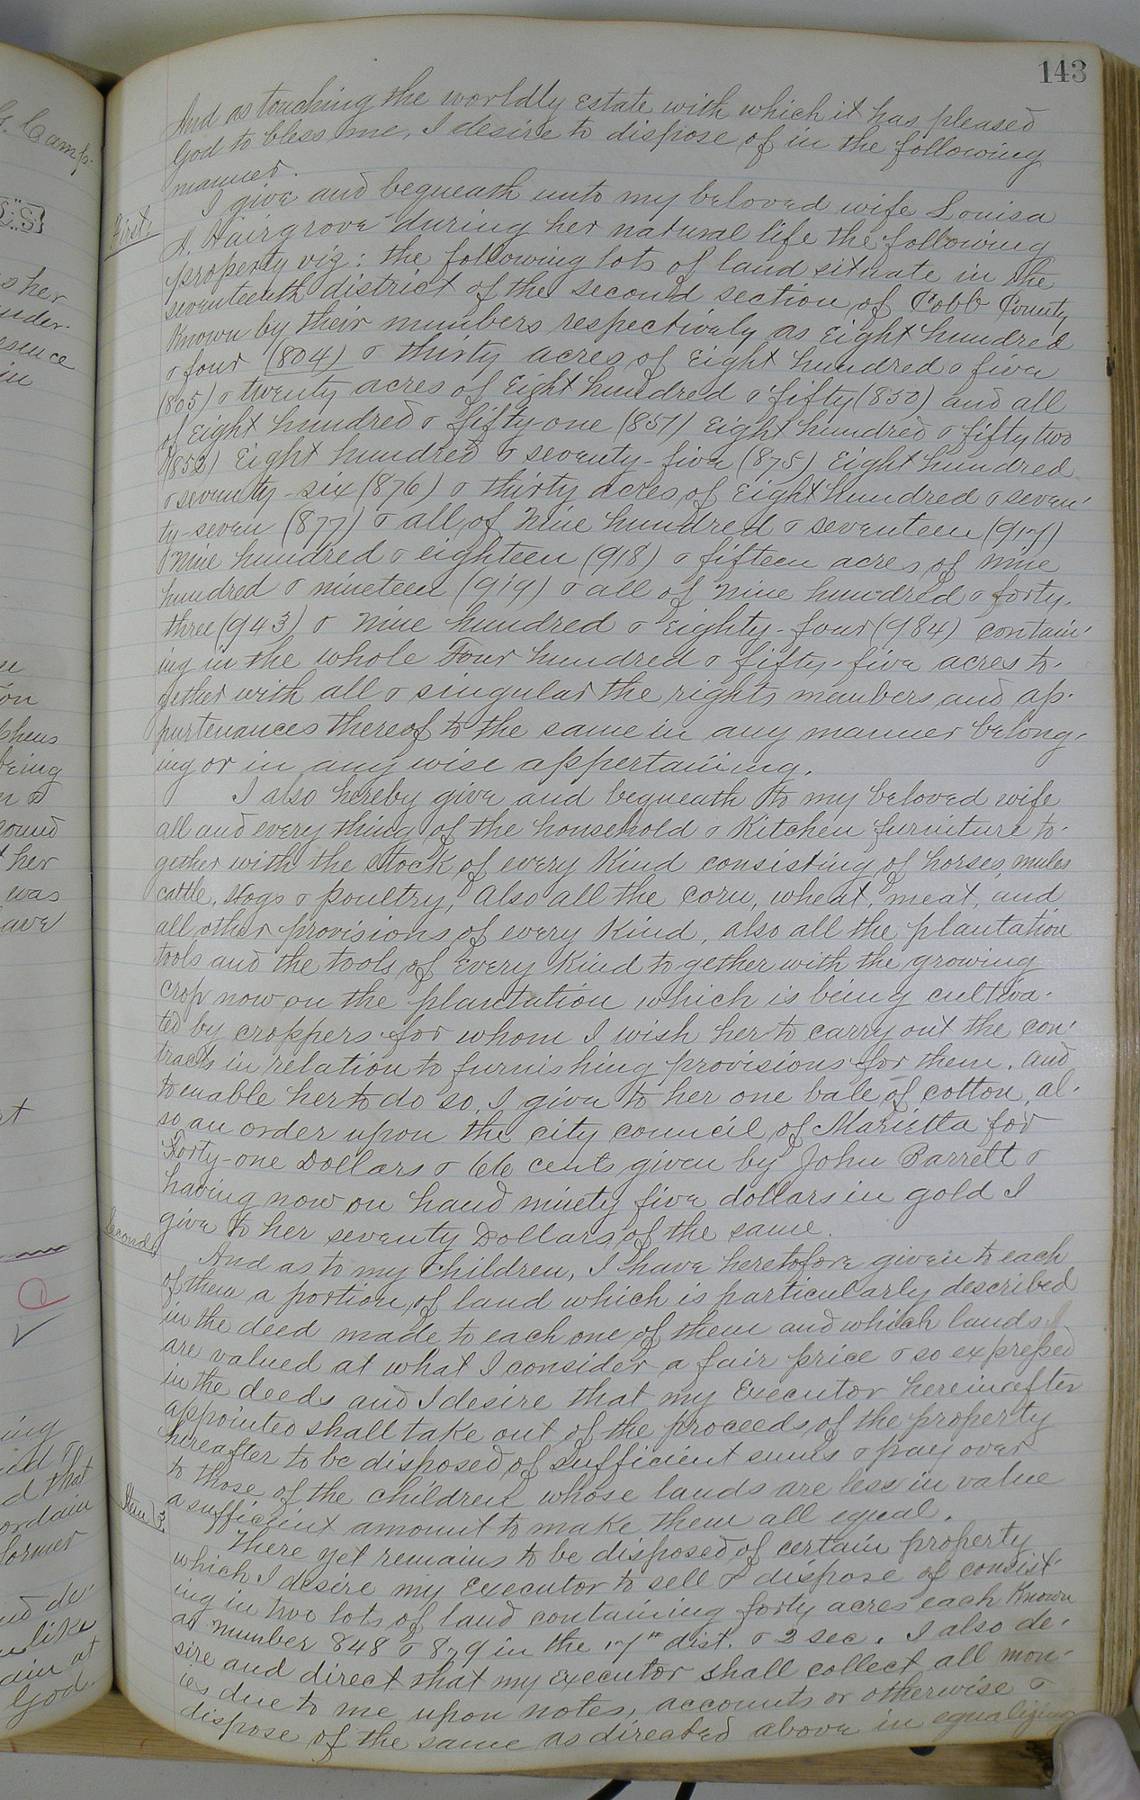 143
And as touching the worldly Estate with which it has pleased
God to bless me, I desire to dispose of in the following
manner.
First,
I give and bequeath unto my beloved wife Louisa
A. Hairgrove during her natural life the following
property viz: the following lots of land situate in the
seventeenth district of the second section of Cobb County
Known by their numbers respectively as Eight hundred
& four (804) & thirty acres of Eight hundred & five
(805) & twenty acres of Eight hundred & fifty (850) and all
of Eight hundred & fifty-one (851) Eight hundred & fifty two
(852) Eight hundred & seventy-five (875) Eight hundred
& seventy-six (876) & thirty acres of Eight hundred & seven-
ty-seven (877) & all of Nine hundred & seventeen (917)
& Nine hundred & eighteen (918) & fifteen acres of Nine
hundred & nineteen (919) & all of Nine hundred & forty-
three (943) & Nine hundred & Eighty-four (984) contain-
ing in the whole Four hundred & fifty-five acres to-
gether with all & singular the rights members and ap-
purtenances thereof to the same in any manner belong-
ing or in any wise appertaining.
I also hereby give and bequeath to my beloved wife
all and every thing of the household & Kitchen furniture to-
gether with the stock of every Kind consisting of horses, mules
cattle, Hogs & poultry, Also all the corn, wheat, meat, and
all other provisions of every Kind, also all the plantation
tools and the tools of Every Kind together with the growing
crop now on the plantation which is being cultiva-
ted by croppers for whom I wish her to carry out the con-
tracts in relation to furnishing provisions for them. and
to enable her to do so, I give to her one bale of cotton, al-
so an order upon the city council of Marietta for
Forty-one Dollars & 66 cents given by John Barrett &
having now on hand ninety five dollars in gold I
give to her seventy Dollars of the same.
Second,
And as to my children, I have heretofore given to each
of them a portion of land which is particularly described
in the deed made to each one of them and which lands
are valued at what I consider a fair price & so expressed
in the deeds and I desire that my Executor hereinafter
appointed shall take out of the proceeds of the property
hereafter to be disposed of sufficient sums & pay over
to those of the children whose lands are less in value
a sufficient amount to make them all equal.
Item 3.
There yet remains to be disposed of certain property
which I desire my Executor to sell & dispose of consist-
ing in two lots of land containing forty acres each Known
as number 848 & 879 in the 17th dist. & 2 sec. I also de-
sire and direct that my Executor shall collect all mon-
ies due to me upon notes, accounts or otherwise &
dispose of the same as directed above in equalizing